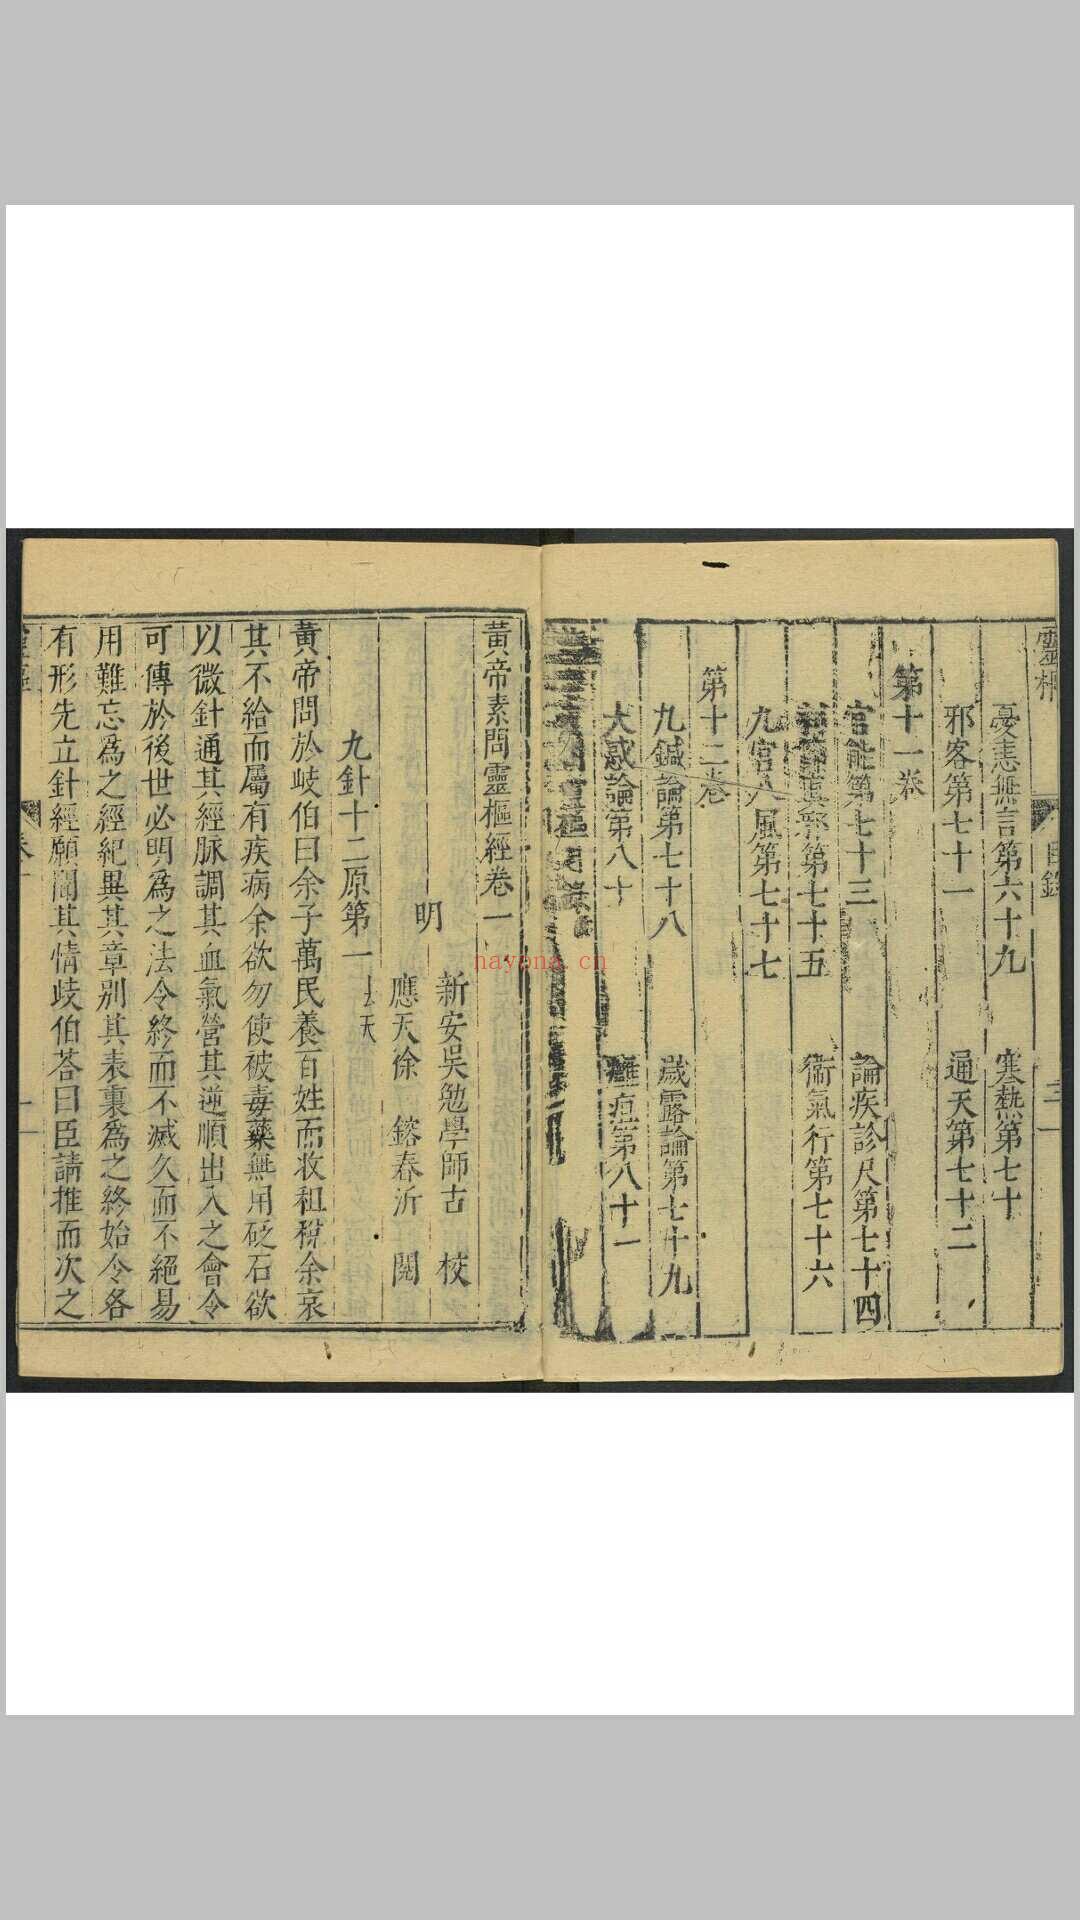 靈樞
目錄
憂恚無言第六十九　寒熱第七十
邪客第七十一　通天第七十二
第十一卷
官能第七十三　論疾診尺第七十四
刺節真邪第七十五　衞氣行第七十六
九宮八風第七十七
第十二卷
九鍼論第七十八　歲露論第七十九
大惑論第八十　癰疽第八十一
黃帝素問靈樞經卷一
明
新安吳勉學師古　校
應天徐　鎔春沂　閱
九針十二原第一　法天
黃帝問於岐伯曰余子萬民養百姓而收租稅余哀
其不給而屬有疾病余欲勿使被毒藥無用砭石欲
以微針通其經脉調其血氣營其逆順出入之會令
可傳於後世必明爲之法令終而不滅久而不絕易
用難忘爲之經紀異其章別其表裏爲之終始令各
有形先立針經願聞其情歧伯荅曰臣請推而次之
nayona.cn